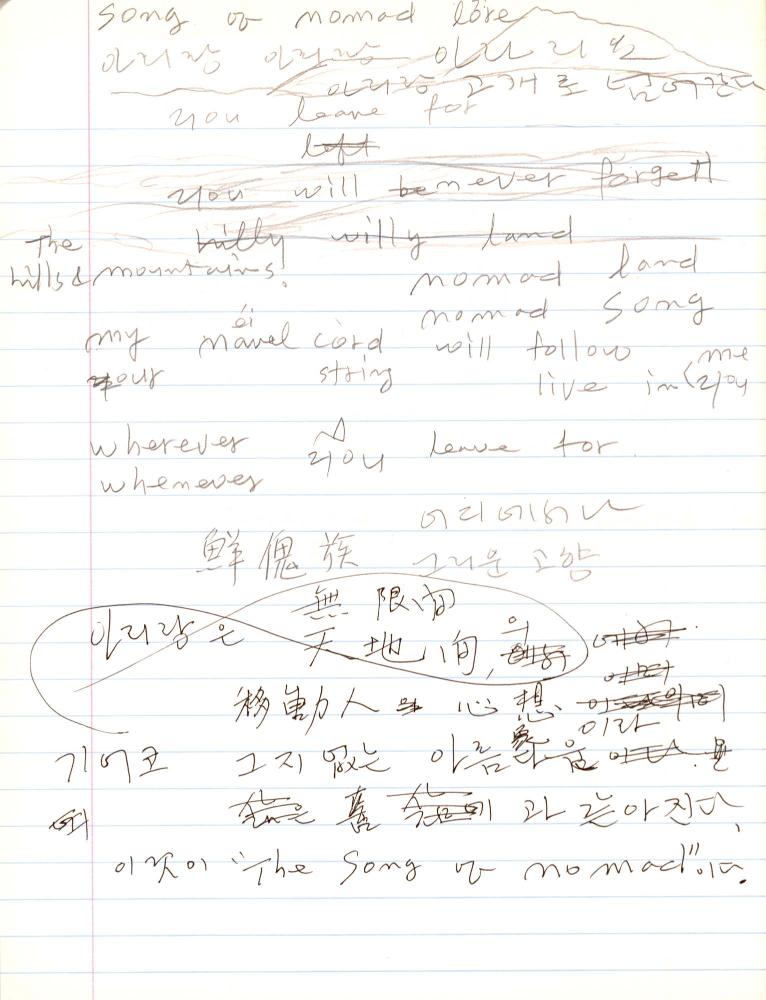 Song of nomad lore
아리랑 아리랑 아라리요
아리랑 고개로 넘어간다
you leave for
left
you will be never forget
The hilly willy land
hills & mountains!
nomad land
nomad song
my navel cord will follow me
your string live in (you
wherever you leave for.
whenever
어디에서나
鮮傀族 그리운 고향
無限间
아리랑은 天地间, 의
移動人 心想
이라
기어코 그지없는 아름다움
舊 과 같아진다,
이것이 "The Song of nomad"이다.